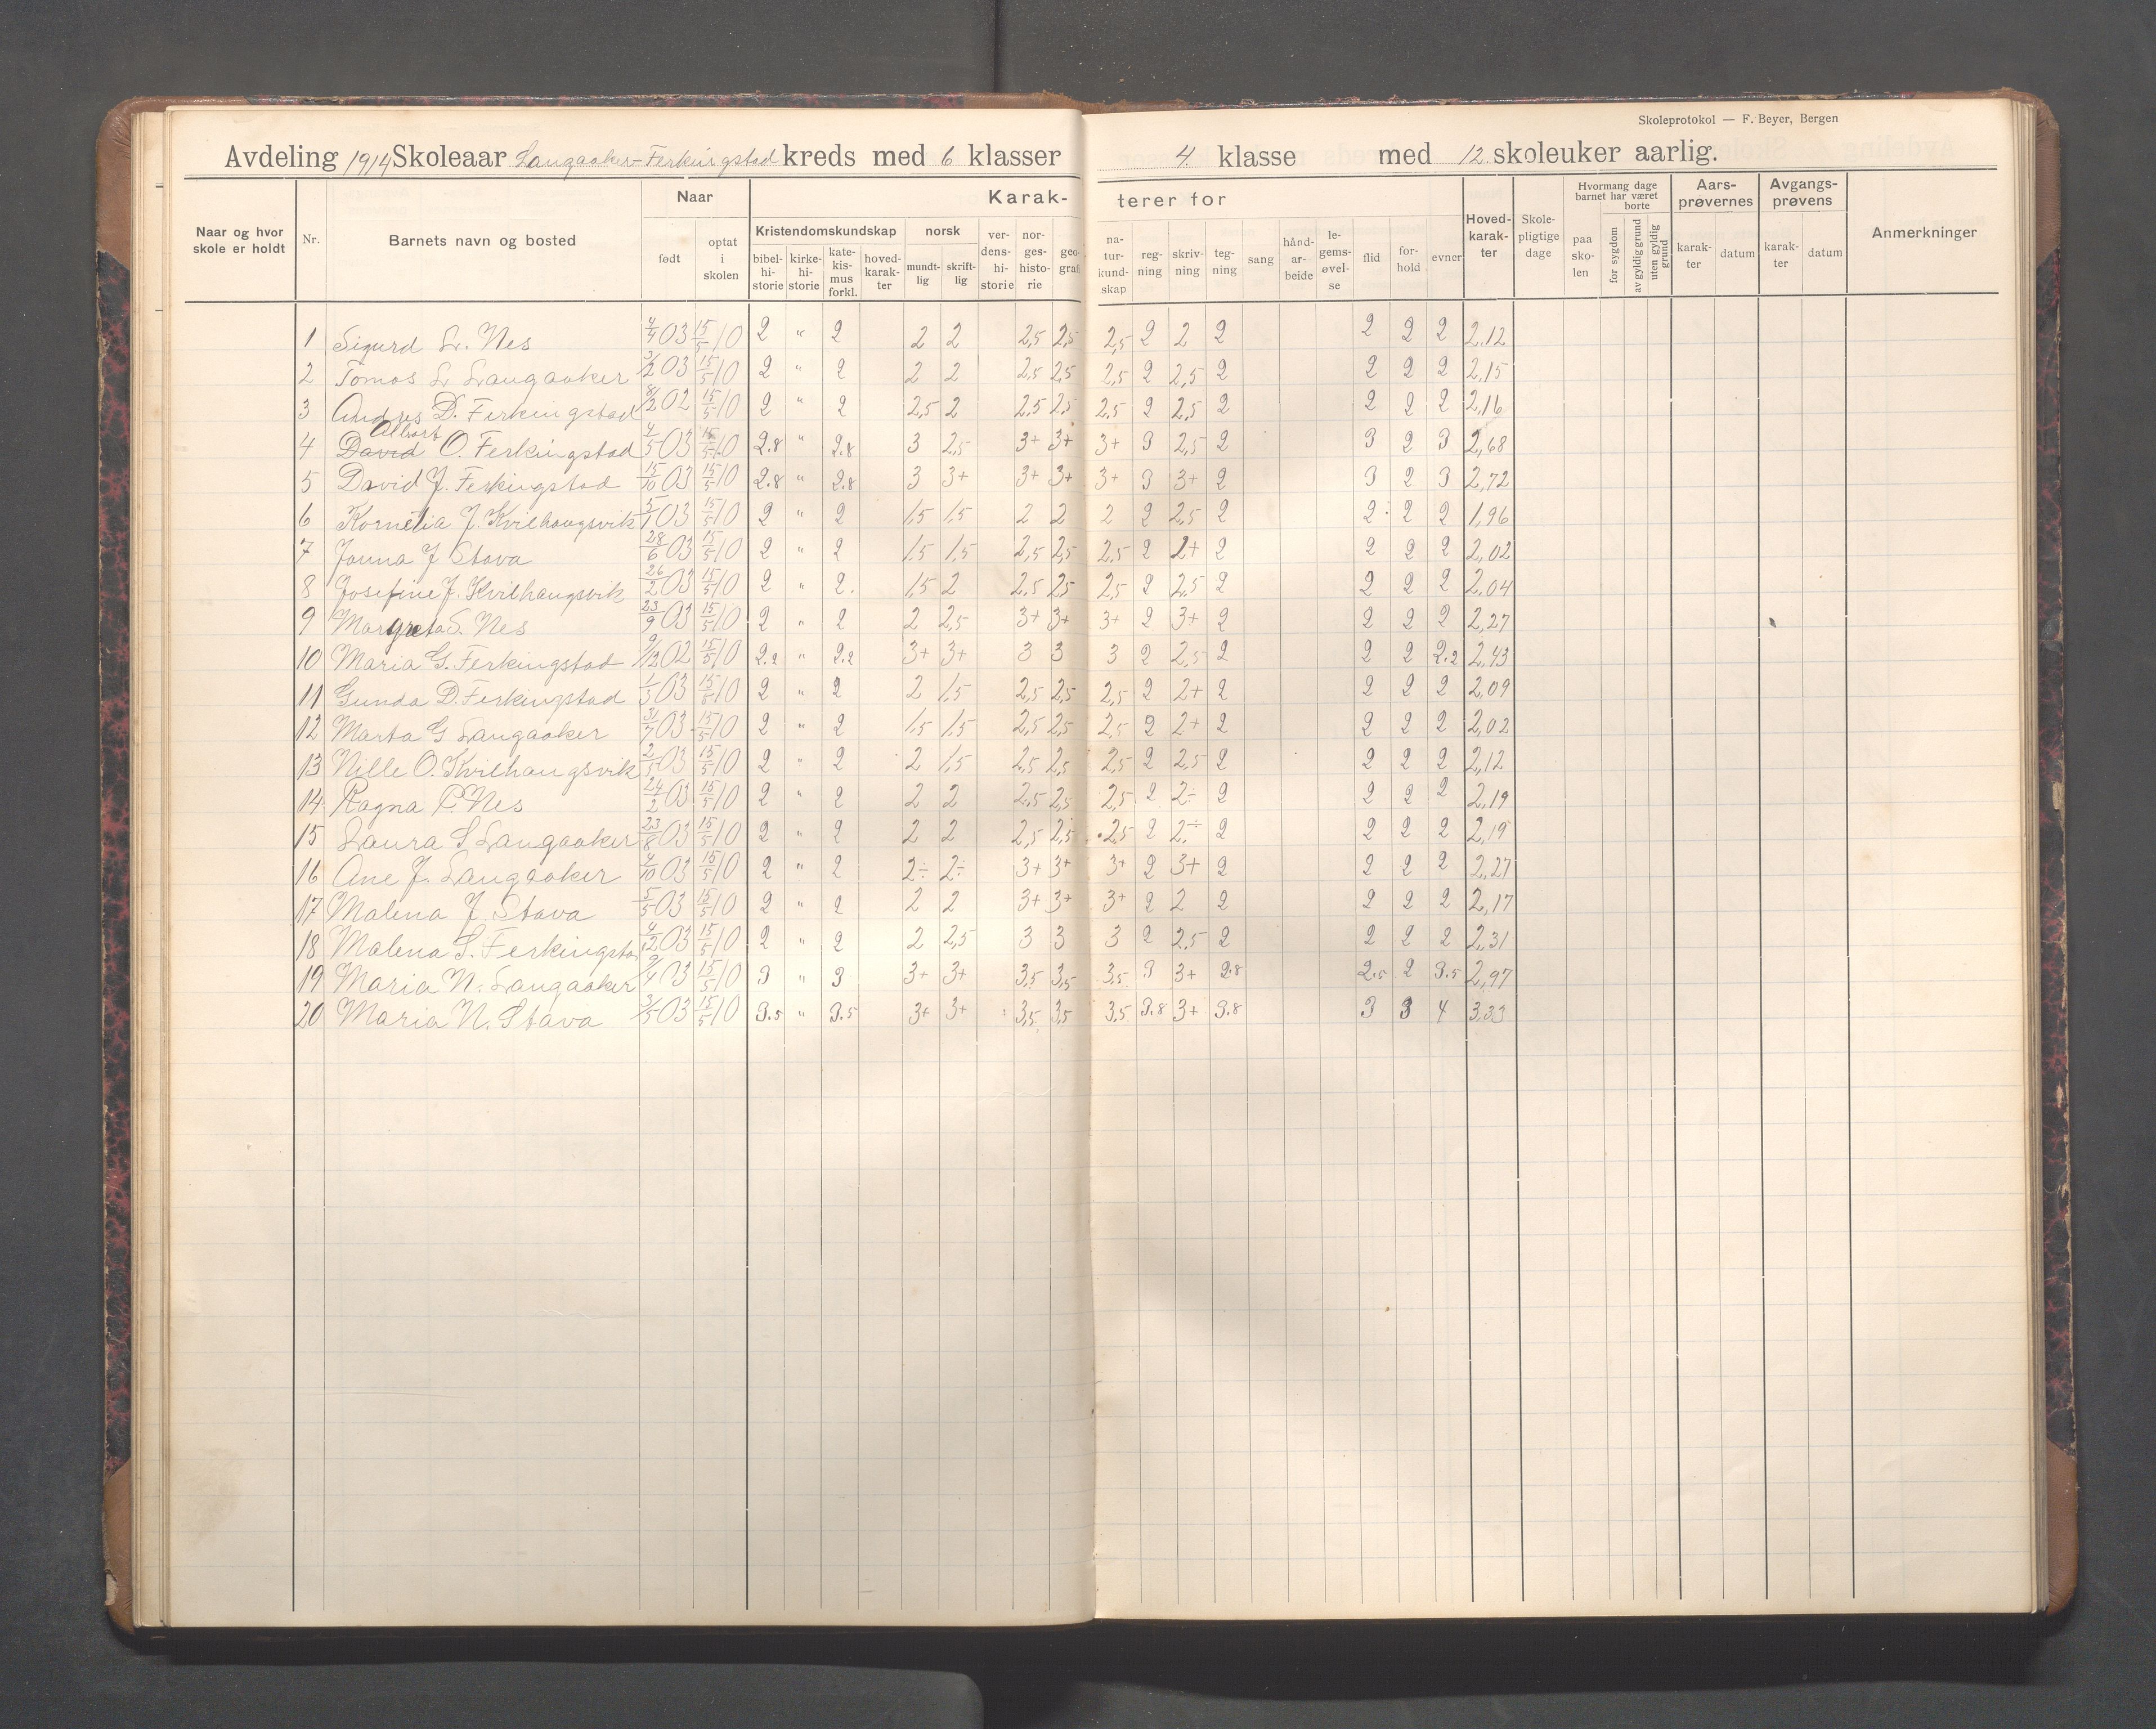 Skoleprotokol — F. Beyer, Bergen
Avdeling 1914 Skoleaar Langaaker-Ferkingstad kreds med 6 klasser 4. klasse med 12 skoleuker aarlig.
Naar og hvor skole er holdt Nr. Barnets navn og bosted Naar født optat i skolen Karakterer for Kristendomskundskap bibelhistorie kirkehistorie katekismus forkl. hovedkarakter norsk mundtlig skriftlig verdenshistorie norgeshistorie geografi naturkundskap regning skrivning tegning sang håndarbeide legemsøvelse flid forhold evner Hovedkarakter Skolepligtige dage Hvormang dage barnet har været borte paa skolen for sygdom av gyldig grund uten gyldig grund Aarsprøvernes karakter datum Avgangsprøvens karakter datum Anmerkninger
1 Sigurd L. Nes 4/4 03 15/5 10 2 " 2 2 2 2,5 2,5 2,5 2 2 2 2 2 2 2,12
2 Tomas L Langaaker 3/2 03 15/5 10 2 " 2 2 2 2,5 2,5 2,5 2 2,5 2 2 2 2 2,15
3 Andres D. Ferkingstad 8/2 02 15/5 10 2 " 2 2,5 2 2,5 2,5 2,5 2 2,5 2 2 2 2 2,16
Albert
4 David O. Ferkingstad 4/5 03 15/5 10 2.8 " 2.8 3 2,5 3+ 3+ 3+ 3 2,5 2 3 2 3 2,68
5 David J. Ferkingstad 15/10 03 15/5 10 2.8 " 2.8 3 3+ 3+ 3+ 3+ 3 3+ 2 3 2 3 2,72
6 Kornelia J. Kvilhaugsvik 5/1 03 15/5 10 2 " 2 1,5 1,5 2 2 2 2 2,5 2 2 2 2 1,96
7 Jonna J Stava 28/6 03 15/5 10 2 " 2 1,5 1,5 2,5 2,5 2,5 2 2+ 2 2 2 2 2,02
8 Josefine J. Kvilhaugsvik 26/2 03 15/5 10 2 " 2. 1,5 2 2,5 2,5 2,5 2 2,5 2 2 2 2 2,04
9 Margreta S. Nes 23/9 03 15/5 10 2 " 2 2 2,5 3+ 3+ 3+ 2 3+ 2 2 2 2 2,27
10 Maria G. Ferkingstad 9/12 02 15/5 10 2.2 " 2.2 3+ 3+ 3 3 3 2 2,5 2 2 2 2.2 2,43
11 Gunda D. Ferkingstad 1/3 03 15/5 10 2 " 2 2 1,5 2,5 2,5 2,5 2 2+ 2 2 2 2 2,09
12 Marta G Langaaker 31/7 03 15/5 10 2 " 2 1,5 1,5 2,5 2,5 2,5 2 2+ 2 2 2 2 2,02
13 Nille O. Kvilhaugsvik 2/5 03 15/5 10 2 " 2 2 1,5 2,5 2,5 2,5 2 2,5 2 2 2 2 2,12
14 Ragna P. Nes 24/2 03 15/5 10 2 " 2 2 2 2,5 2,5 2,5 2 2÷ 2 2 2 2 2,19
15 Laura S Langaaker 23/8 03 15/5 10 2 " 2 2 2 2,5 2,5 2,5 2 2÷ 2 2 2 2 2,19
16 Ane J. Langaaker 4/10 03 15/5 10 2 " 2 2÷ 2÷ 3+ 3+ 3+ 2 3+ 2 2 2 2 2,27
17 Malena J. Stava 5/5 03 15/5 10 2 " 2 2 2 3+ 3+ 3+ 2 2 2 2 2 2 2,17
18 Malena S. Ferkingsta 4/12 03 15/5 10 2 " 2 2 2,5 3 3 3 2 2,5 2 2 2 2 2,31
19 Maria N. Langaaker 9/4 03 15/5 10 3 " 3 3+ 3+ 3,5 3,5 3,5 3 3+ 2.8 2.5 2 3.5 2,97
20 Maria N. Stava 3/5 03 15/5 10 3.5 " 3.5 3+ 3+ 3,5 3,5 3,5 3.8 3+ 3.8 3 3 4 3,33